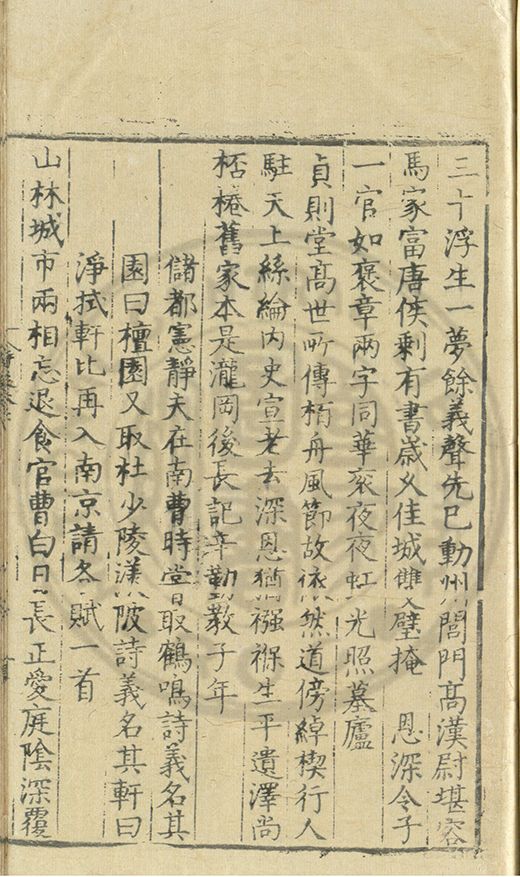 三十浮生一夢餘義聲先已動州閭門高漢尉堪容
馬家富唐侯剩有書歲久佳城雙璧掩　恩深令子
一官如褒章兩字同華衮夜夜虹光照墓廬
貞則堂髙世所傳栢舟風節故依然道傍綽楔行人
駐天上絲綸内史宣老去深恩猶襁褓生平遺澤尚
桮棬舊家本是瀧岡後長記辛勤教子年
儲都憲靜夫在南曹時嘗取鶴鳴詩義名其
園曰檀園又取杜少陵渼陂詩義名其軒曰
淨拭軒比再入南京請各賦一首
山林城市兩相忘退食官曹白日長正愛庭陰深覆